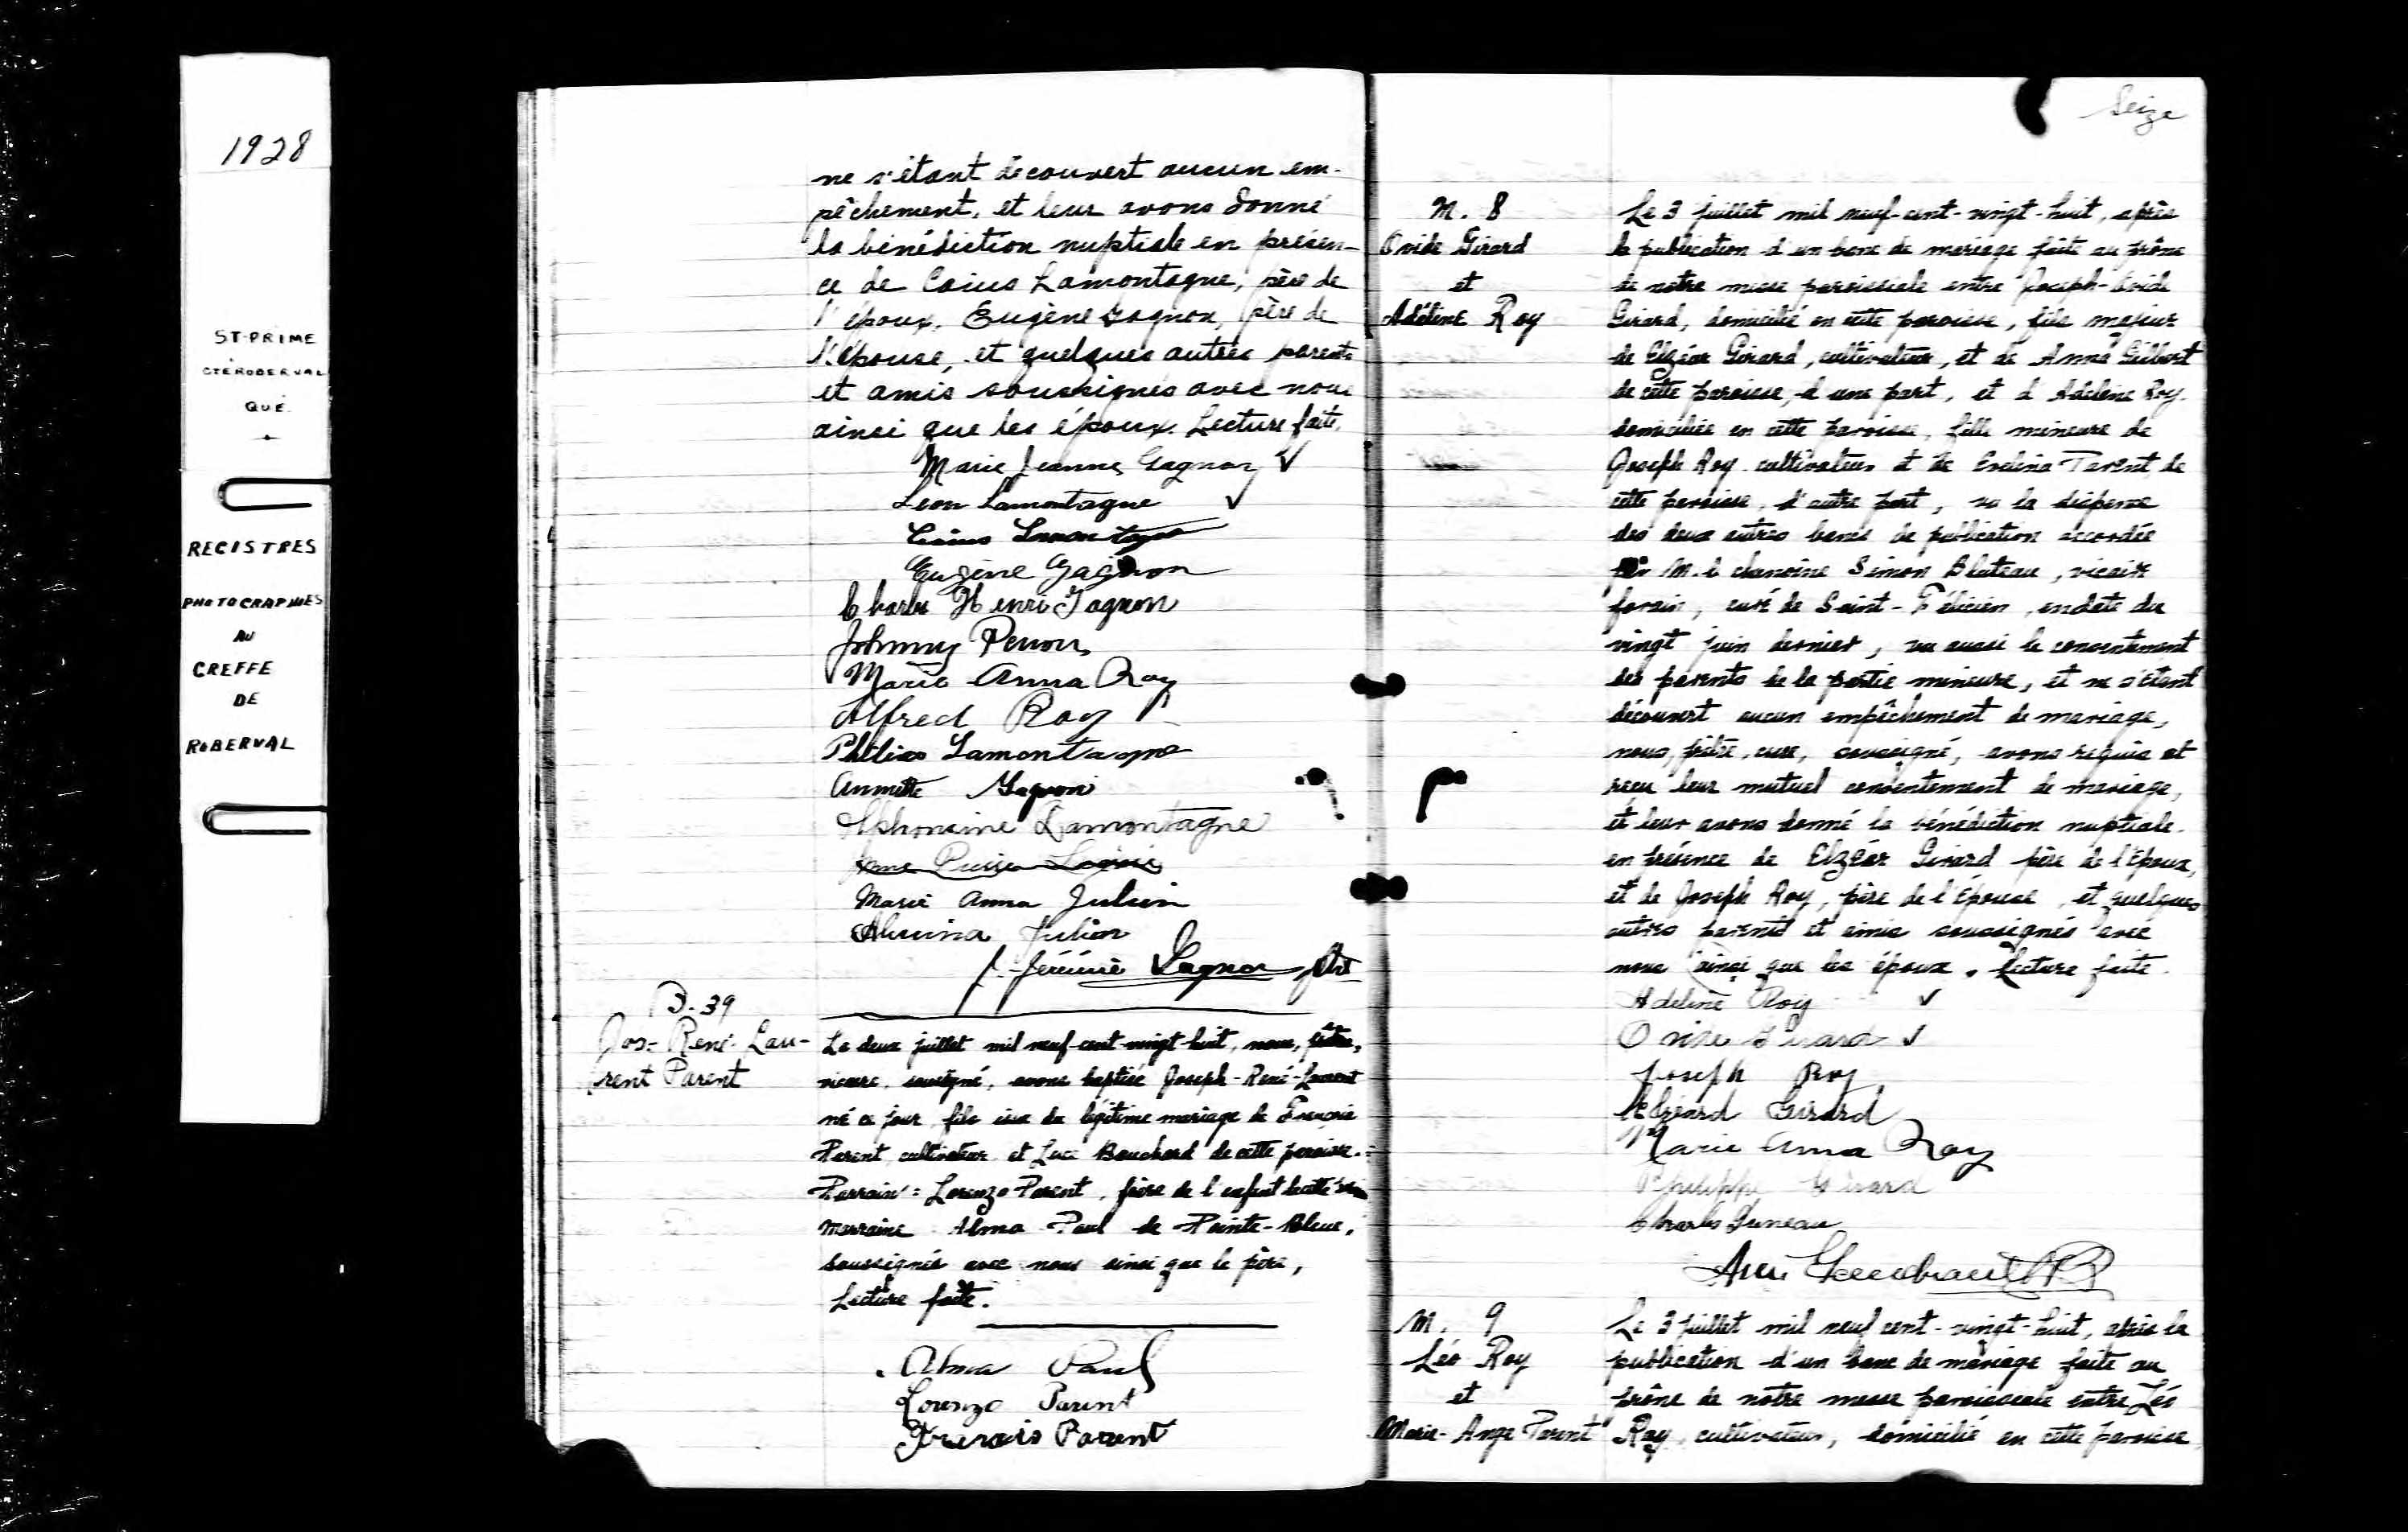 1928
ST-PRIME
CTÉ ROBERVAL
QUÉ.
REGISTRES
PHOTOGRAPHIÉS
AU
GREFFE
DE
ROBERVAL
ne s'étant découvert aucun em-
pêchement, et leur avons donné
la bénédiction nuptiale en présen-
ce de Caius Lamontagne, père de
l'époux, Eugène Gagnon, père de
l'épouse, et quelques autres parents
et amis soussignés avec nous
ainsi que les époux. Lecture faite.
Marie Jeanne Gagnon ✓
Léon Lamontagne ✓
Caius Lamontagne
Eugène Gagnon
Charles Henri Gagnon
Johnny Perron
Marie Anna Roy
Alfred Roy
Philias Lamontagne
Annette Gagnon
Alphonsine Lamontagne
Marie Anna Julien
Julien
J. Jérémie Gagnon ptre
B. 39
Jos-René-Lau-
rent Parent
Le deux juillet mil neuf-cent-vingt-huit, nous, prêtre,
vicaire, soussigné, avons baptisé Joseph-René-Laurent
né ce jour, fils issu du légitime mariage de François
Parent, cultivateur et Luce Bouchard de cette paroisse.
Parrain: Lorenzo Parent, frère de l'enfant
marraine Alma Paul de Pointe-Bleue,
soussignés avec nous ainsi que le père,
Lecture faite.
Alma Paul
Lorenzo Parent
François Parent
Seize
M. 8
Ovide Girard
et
Adéline Roy
Le 3 juillet mil neuf-cent-vingt-huit, après
la publication d'un banc de mariage faite au prône
de notre messe paroissiale entre Joseph-Ovide
Girard, domicilié en cette paroisse, fils majeur
de Elzéar Girard, cultivateur, et de Anna Gilbert
de cette paroisse, d'une part, et d'Adéline Roy
domiciliée en cette paroisse, fille mineure de
Joseph Roy cultivateur et de Evelina Parent, de
cette paroisse, d'autre part, vu la dispense
des deux autres bancs de publication accordée
par M. le chanoine Simon Bluteau, vicaire
forain, curé de Saint-Félicien, en date du
vingt juin dernier, vu aussi le consentement
des parents de la partie mineure, et ne s'étant
découvert aucun empêchement de mariage,
nous, prêtre, curé, soussigné, avons requis et
reçu leur mutuel consentement de mariage,
et leur avons donné la bénédiction nuptiale
en présence de Elzéar Girard père de l'époux,
et de Joseph Roy, père de l'épouse, et quelques
autres parents et amis soussignés avec
nous ainsi que les époux. Lecture faite.
Adeline Roy ✓
Ovide Girard ✓
Joseph Roy
Elzéard Girard
Marie Anna Roy
Philippe Girard
Charles Juneau
M. 9
Léo Roy
et
Marie-Ange Parent
Le 3 juillet mil neuf cent-vingt-huit, après la
publication d'un banc de mariage faite au
prône de notre messe paroissiale entre Léo
Roy, cultivateur, domicilié en cette paroisse